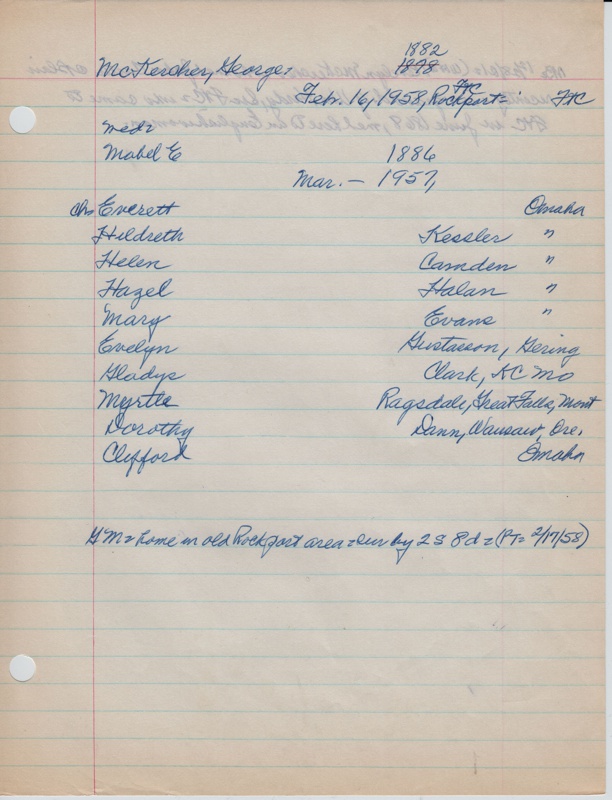 1882
McKercher, George = 1878
Feb. 16, 1958, Rockport = FtC FtC
wed =
Mabel E 1886
Mar. — 1957,
chs Everett Omaha
Hildreth Kessler "
Helen Camden "
Hazel Halan "
Mary Evans "
Evelyn Gustasson, Gering
Gladys Clark, KC Mo
Myrtle Ragsdale, Great Falls, Mont
Dorothy Dann, Wausaw, Ore.
Clifford Omaha
GM = home in old Rockport area = sur by 2 S 8 d = (PT = 2/17/58)